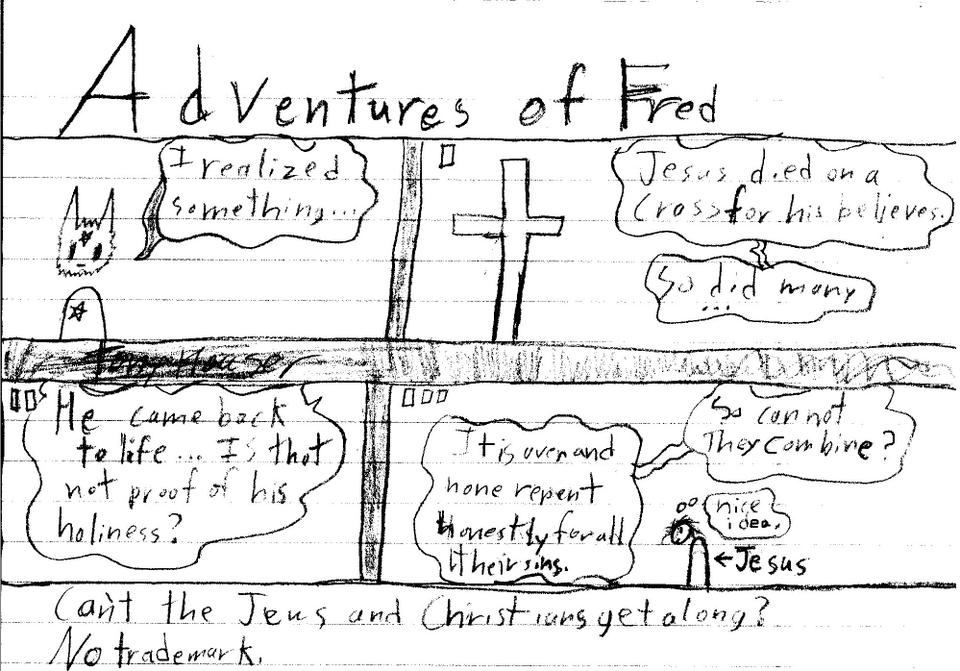 Adventures of Fred
I realized
something...
Jesus died on a
Cross for his believes.
So did many
...
He came back
to life ... Is that
not proof of his
holiness?
It is over and
none repent
Honestly for all
their sins.
So cannot
They combine?
nice
idea.
←Jesus
Can't the Jeus and Christians get along?
No trademark.